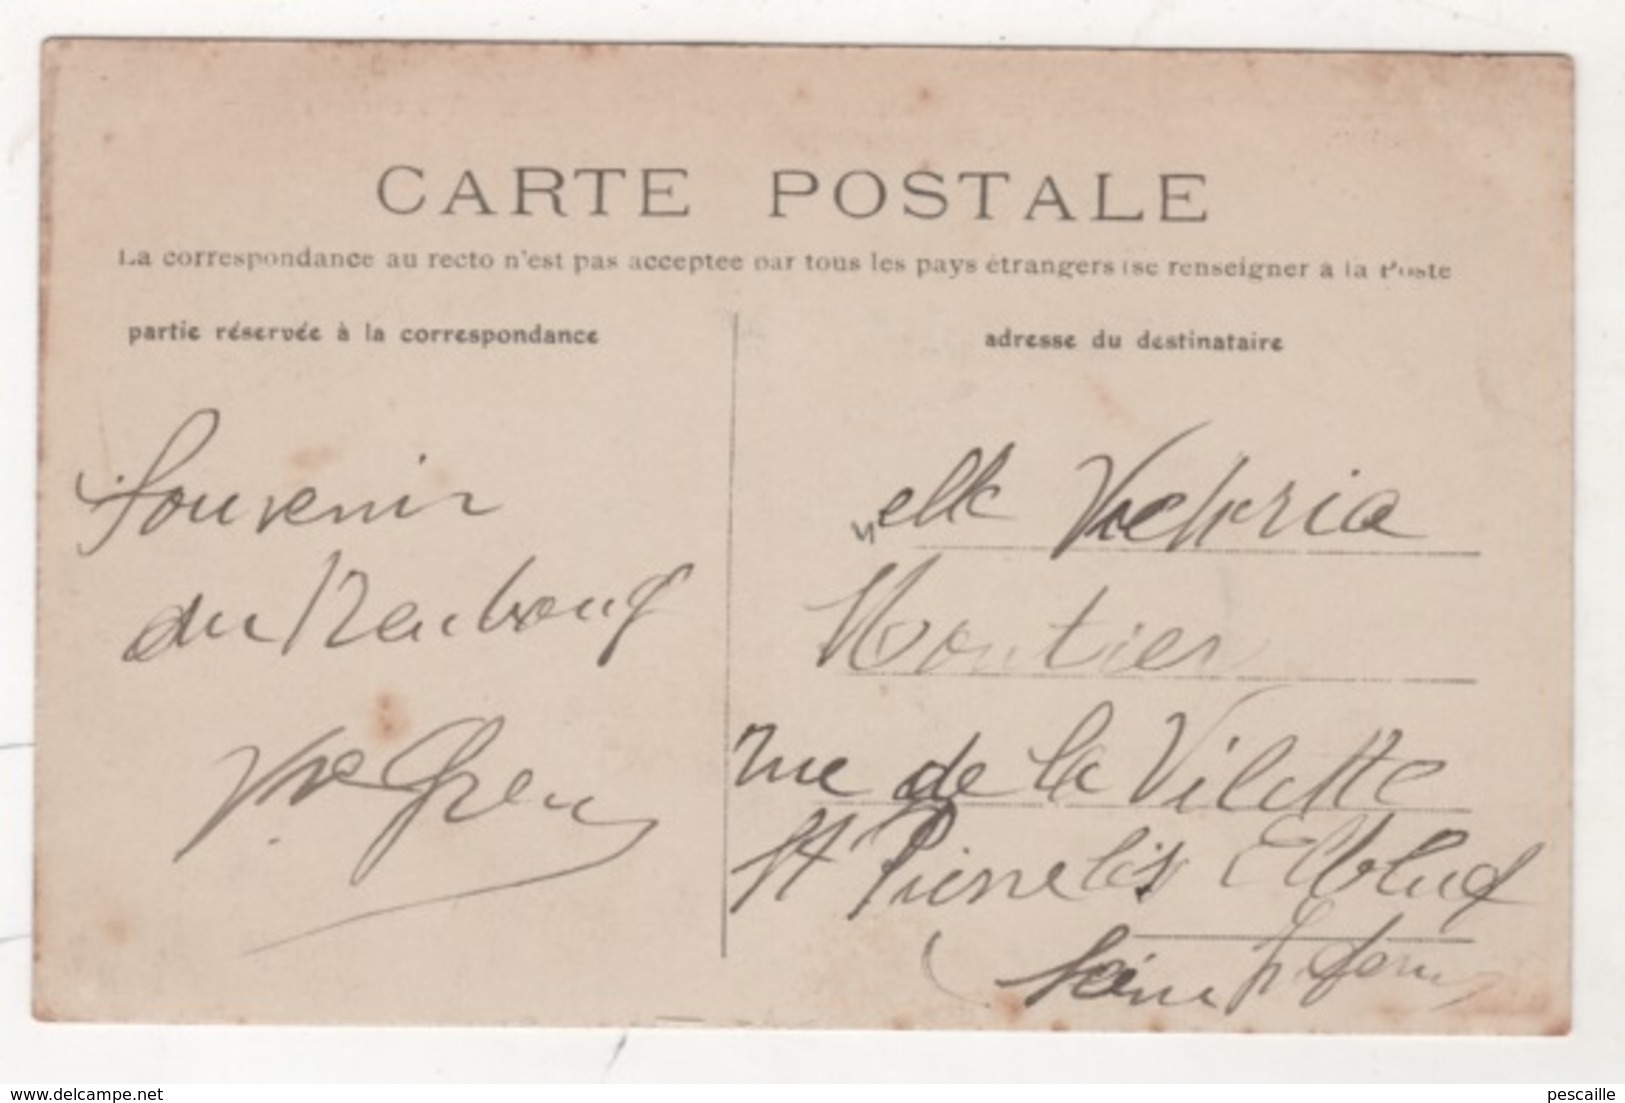 CARTE POSTALE
La correspondance au recto n'est pas acceptee par tous les pays étrangers (se renseigner à la Poste
partie réservée à la correspondance
adresse du destinataire
Souvenir
du Neubourg
Melle Victoria
Montier
rue de la Vilette
St Pierre les Elbeuf
(Seine Infer
www.delcampe.net
pescaille